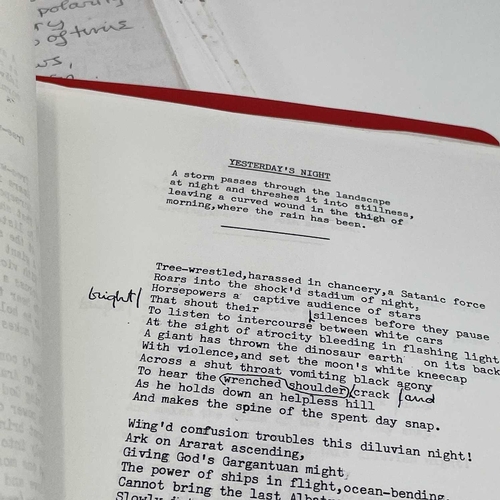 polarity
of time
YESTERDAY'S NIGHT
A storm passes through the landscape
at night and threshes it into stillness,
leaving a curved wound in the thigh of
morning,where the rain has been.
Tree-wrestled,harassed in chancery,a Satanic force
Roars into the shock'd stadium of night,
Horsepowers a captive audience of stars
bright/ That shout their silences before they pause
To listen to intercourse between white cars
At the sight of atrocity bleeding in flashing light
A giant has thrown the dinosaur earth on its back
With violence,and set the moon's white kneecap
Across a shut throat vomiting black agony
To hear the wrenched shoulder/crack /and
As he holds down an helpless hill
And makes the spine of the spent day snap.
Wing'd confusion troubles this diluvian night!
Ark on Ararat ascending,
Giving God's Gargantuan might
The power of ships in flight,ocean-bending.
Cannot bring the last